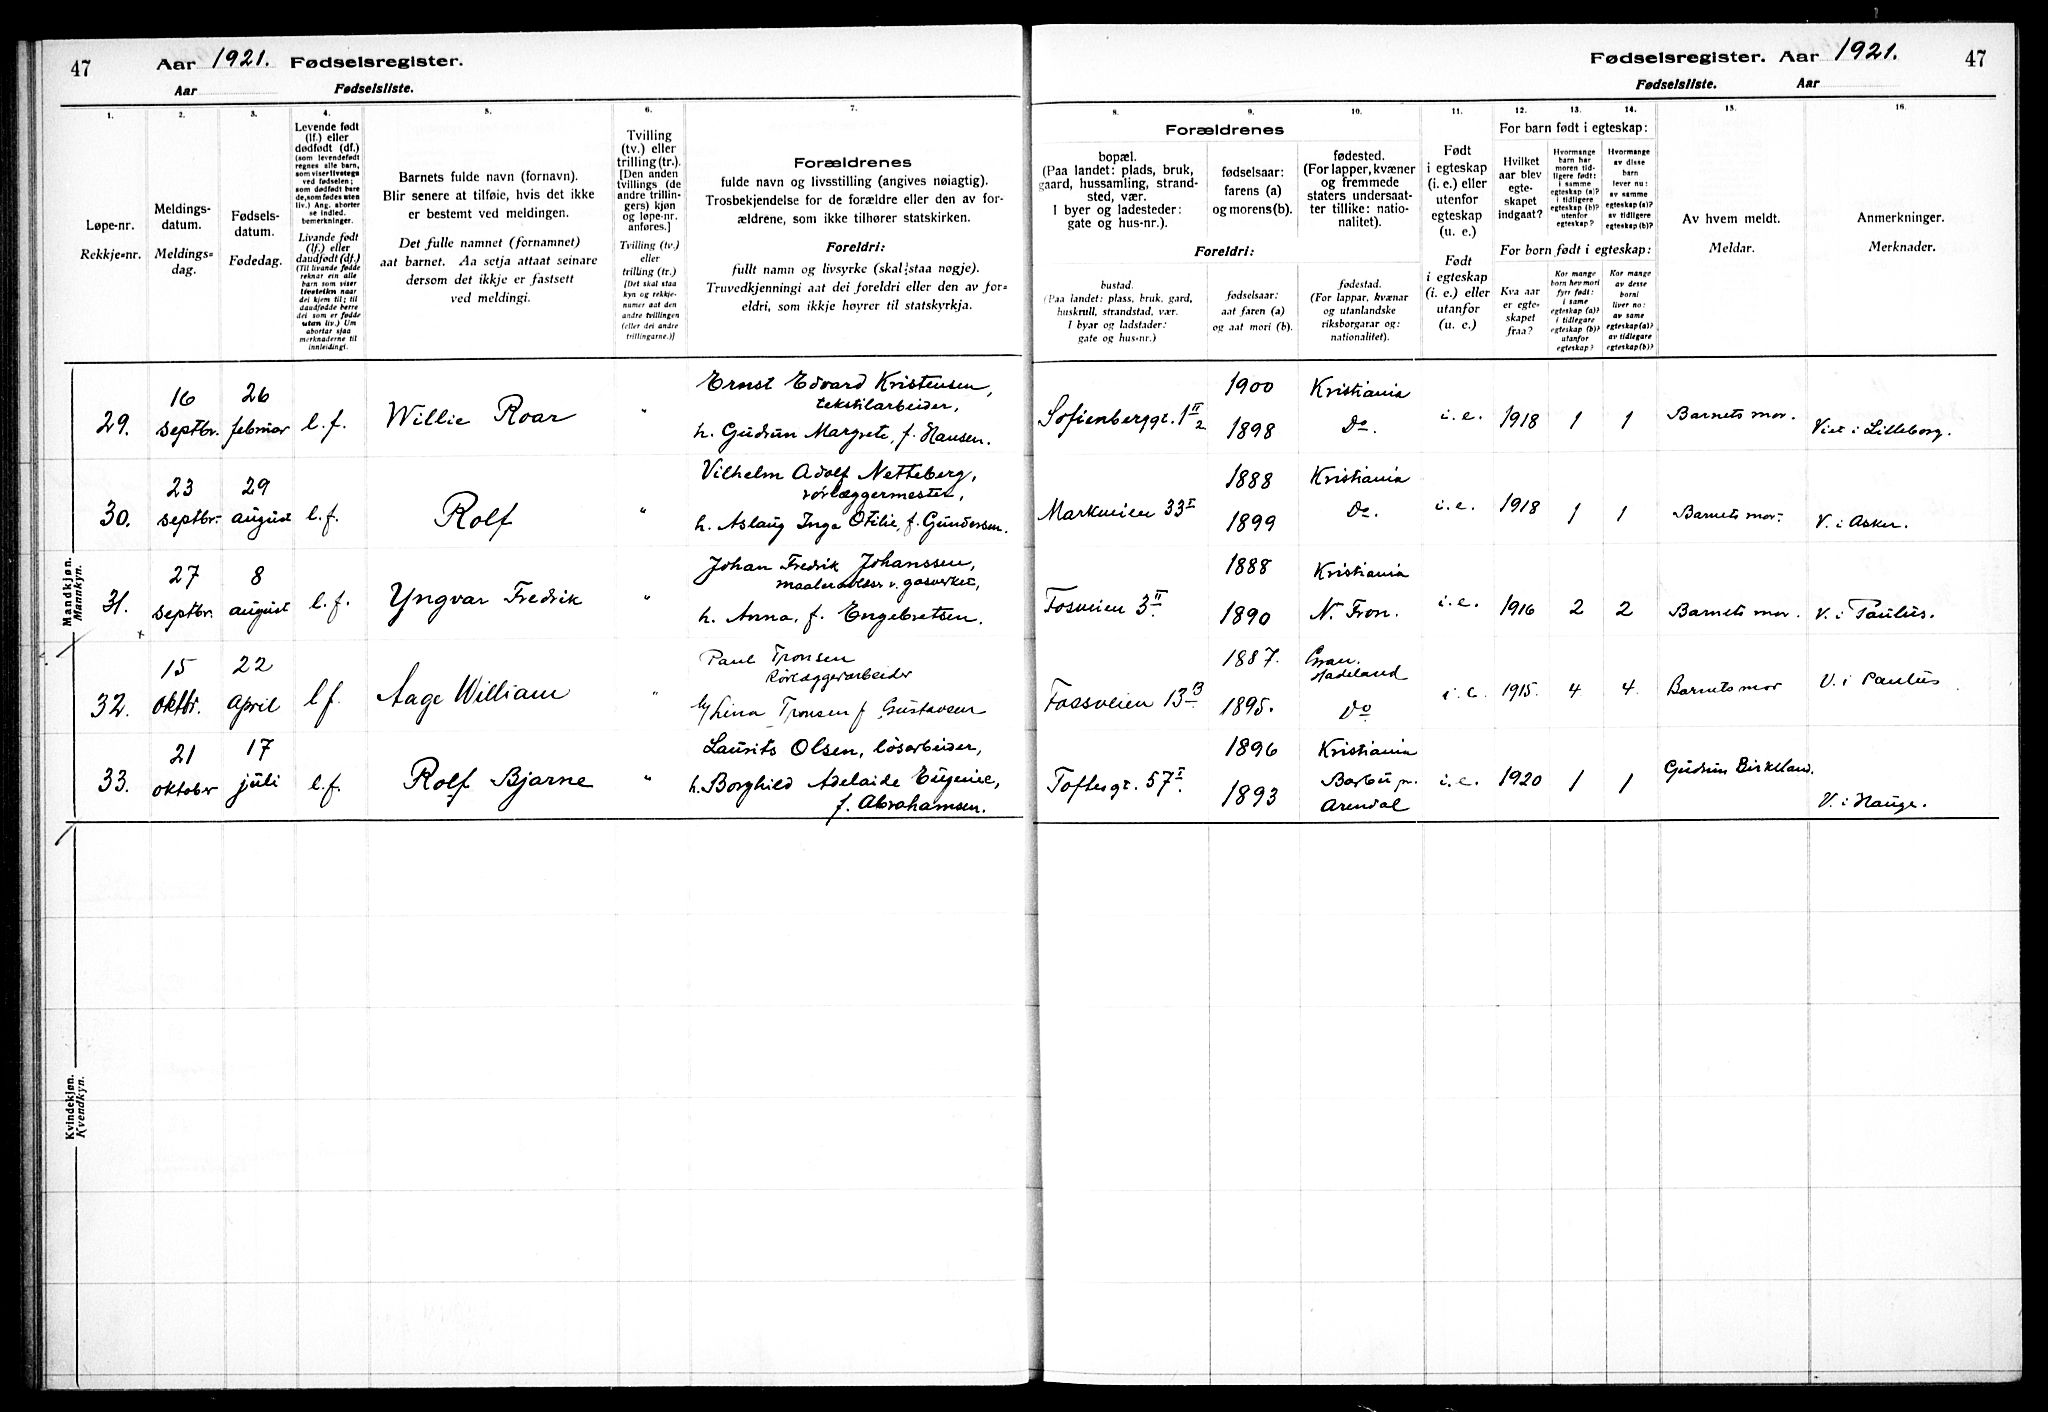 47
Aar 1921. Fødselsregister.
Aar Fødselsliste.
1.
2.
3.
4.
5.
6.
7.
Løpe-nr.
Rekkje-nr.
Meldings-
datum.
Meldings-
dag.
Fødsels-
datum.
Fødedag.
Levende født
(lf.) eller
dødfødt (df.)
(som levendefødt
regnes alle barn,
som viser livstegn
ved fødselen;
som dødfødt bare
de, som fødes uten
liv.) Ang. aborter
se indled.
bemerkninger.
Livande født
(lf.) eller
daudfødt (df.)
(Til livande fødde
reknar ein alle
barn som viser
livsteikn naar
dei kjem til; til
daudfødde berre
dei som er fødde
utan liv.) Um
abortar sjaa
merknaderne til
innleiding.
Barnets fulde navn (fornavn).
Blir senere at tilføie, hvis det ikke
er bestemt ved meldingen.
Det fulle namnet (fornamnet)
aat barnet. Aa setja attaat seinare
dersom det ikkje er fastsett
ved meldingi.
Tvilling
(tv.) eller
trilling (tr.)
[Den anden
tvillings (de
andre trillin-
gers) kjøn
og løpe-nr.
anføres.]
Tvilling (tv.)
eller
trilling (tr.)
[Det skal staa
kyn og rekkje-
numer aat den
andre tvillingen
(eller dei andre
trillingarne.)]
Forældrenes
fulde navn og livsstilling (angives nøiagtig).
Trosbekjendelse for de forældre eller den av for-
ældrene, som ikke tilhører statskirken.
Foreldri:
fullt namn og livsyrke (skal staa nøgje).
Truvedkjenningi aat dei foreldri eller den av for-
eldri, som ikkje høyrer til statskyrkja.
Mandkjøn.
Mannkyn.
29. 16 septbr. 26 februar l.f. Willie Roar " Ernst Edvard Kristensen,
tekstilarbeider,
h. Gudrun Margrete, f. Hansen.
30. 23 septbr. 29 august l.f. Rolf " Vilhelm Adolf Netteberg,
rørlæggermester,
h. Aslaug Inga Otilie, f. Gundersen.
31. 27 septbr. 8 august l.f. Yngvar Fredrik " Johan Fredrik Johanssen,
v. gasverket,
h. Anna, f. Engebretsen.
32. 15 oktbr. 22 April l.f. Aage William " Paul Tronsen
Rørlæggerarbeider
Lina Tronsen f Gustavsen
33. 21 oktober 17 juli l.f. Rolf Bjarne " Laurits Olsen, løsarbeider,
h. Borghild Adelaide Eugenie,
f. Abrahamsen.
Kvindekjøn.
Kvendkyn.
Fødselsregister. Aar 1921.
47
Fødselsliste. Aar
8.
9.
10.
11.
12.
13.
14.
15.
16.
Forældrenes
bopæl.
(Paa landet: plads, bruk,
gaard, hussamling, strand-
sted, vær.
I byer og ladesteder:
gate og hus-nr.).
fødselsaar:
farens (a)
og morens (b).
fødested.
(For lapper, kvæner
og fremmede
staters undersaat-
ter tillike: natio-
nalitet).
Foreldri:
bustad.
(Paa landet: plass, bruk, gard,
huskrull, strandstad, vær.
I byar og ladstader:
gate og hus-nr.)
fødselsaar:
aat faren (a)
og aat mori (b).
fødestad.
(For lappar, kvænar
og utanlandske
riksborgarar og:
nationalitet).
Født
i egteskap
(i. e.) eller
utenfor
egteskap
(u. e.)
Født
i egteskap
(i. e.) eller
utanfor
(u. e.)
For barn født i egteskap:
Hvilket
aar blev
egte-
skapet
indgaat?
Hvormange
barn har
moren tid-
ligere født:
i samme
egteskap (a)?
i tidligere
egteskap (b)?
utenfor
egteskap?
Hvormange
av disse
barn
lever nu:
av samme
egteskap (a)?
av tidligere
egteskap (b)?
For born født i egteskap:
Kva aar
er egte-
skapet
fraa?
Kor mange
born hev mori
fyrr født:
i same
egteskap (a)?
i tidlegare
egteskap (b)?
utanfor
egteskap?
Kor mange
av desse
borni
liver no:
av same
egteskap (a)?
av tidlegare
egteskap (b)?
Av hvem meldt.
Meldar.
Anmerkninger.
Merknader.
Sofienberggt. 1 II 2 1900 1898 Kristiania Do. i.e. 1918 1 1 Barnets mor. Viet i Lilleborg.
Markveien 33 I 1888 1899 Kristiania Do. i.e. 1918 1 1 Barnets mor. V. i Asker.
Fosveien 3 II 1888 1890 Kristiania N. Fron. i.e. 1916 2 2 Barnets mor. V. i Paulus.
Fossveien 13 B 1887. 1895. Gran. Hadeland Do i.e. 1915. 4 4. Barnets mor V. i Paulus
Toftesgt. 57 I. 1896 1893 Kristiania Barbu pr. Arendal i.e. 1920 1 1 Gudrun Birkeland. V. i Hauge.